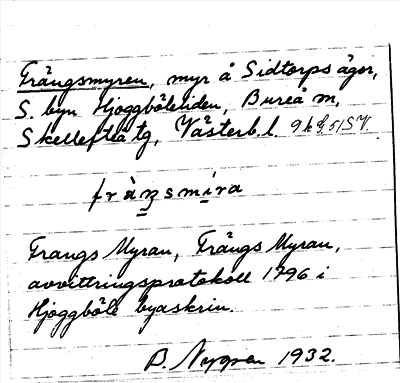 Trångsmyren, myr å Sidtorps ägor,
S. byn Hjoggböleliden, Bureå sn,
Skellefteå tg, Västerb. l.
fràŋsmíra
Trangs Myran, Trångs Myran,
avvittringsprotokoll 1796 i
Hjoggböle byaskrin.
B. Nygren 1932.